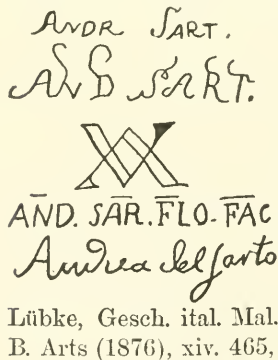 ANDR SART.
AND SART.
AND. SAR. FLO. FAC
Andrea del Sarto
Lübke, Gesch. ital. Mal.
B. Arts (1876), xiv. 465,